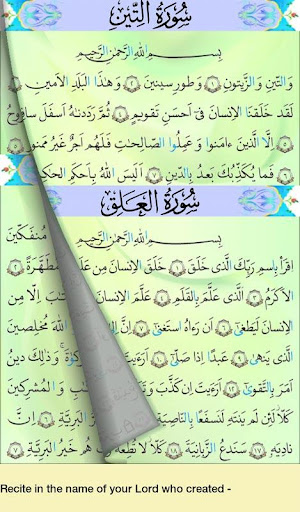 سُورَةُ التِّينِ
بِسْمِ اللهِ الرَّحْمٰنِ الرَّحِيمِ
وَالتِّينِ وَالزَّيْتُونِ ١ وَطُورِ سِينِينَ ٢ وَهٰذَا الْبَلَدِ الْأَمِينِ ٣
لَقَدْ خَلَقْنَا الْإِنسَانَ فِي أَحْسَنِ تَقْوِيمٍ ٤ ثُمَّ رَدَدْنٰهُ أَسْفَلَ
٥ إِلَّا الَّذِينَ ءَامَنُوا وَعَمِلُوا الصّٰلِحٰتِ فَلَهُمْ أَجْرٌ غَيْرُ مَمْنُونٍ
٦ فَمَا يُكَذِّبُكَ بَعْدُ بِالدِّينِ ٧ أَلَيْسَ اللهُ بِأَحْكَمِ
سُورَةُ الْعَلَقِ
بِسْمِ اللهِ الرَّحْمٰنِ الرَّحِيمِ مُنفَكِّينَ
اقْرَأْ بِاسْمِ رَبِّكَ الَّذِي خَلَقَ ١ خَلَقَ الْإِنسَانَ مِنْ مُّطَهَّرَةً
الْأَكْرَمُ ٣ الَّذِي عَلَّمَ بِالْقَلَمِ ٤ عَلَّمَ الْإِنسَ إِلَّا مِن
الْإِنسَانَ لَيَطْغَىٰ ٦ أَن رَّءَاهُ اسْتَغْنَىٰ ٧ إِنَّ إِلَى مُخْلِصِينَ
الَّذِي يَنْهَىٰ ٩ عَبْدًا إِذَا صَلَّىٰ ١٠ أَرَءَيْتَ وَذٰلِكَ دِينُ
أَمَرَ بِالتَّقْوَىٰ ١٢ أَرَءَيْتَ إِن كَذَّبَ وَتَ وَالْمُشْرِكِينَ
كَلَّا لَئِن لَّمْ يَنتَهِ لَنَسْفَعًا بِالنَّاصِيَةِ الْبَرِيَّةِ
نَادِيَهُ ١٧ سَنَدْعُ الزَّبَانِيَةَ ١٨ كَلَّا لَا تُطِعْهُ هُمْ خَيْرُ الْبَرِيَّةِ ٧
Recite in the name of your Lord who created -